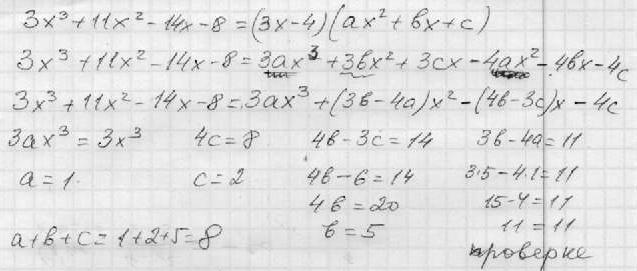 3x³+11x²-14x-8=(3x-4)(ax²+bx+c)
3x³+11x²-14x-8=3ax³+3bx²+3cx-4ax²-4bx-4c
3x³+11x²-14x-8=3ax³+(3b-4a)x²-(4b-3c)x-4c
3ax³=3x³ 4c=8 4b-3c=14 3b-4a=11
a=1. c=2 4b-6=14 3·5-4.1=11
4b=20 15-4=11
a+b+c=1+2+5=8 b=5 11=11
проверке